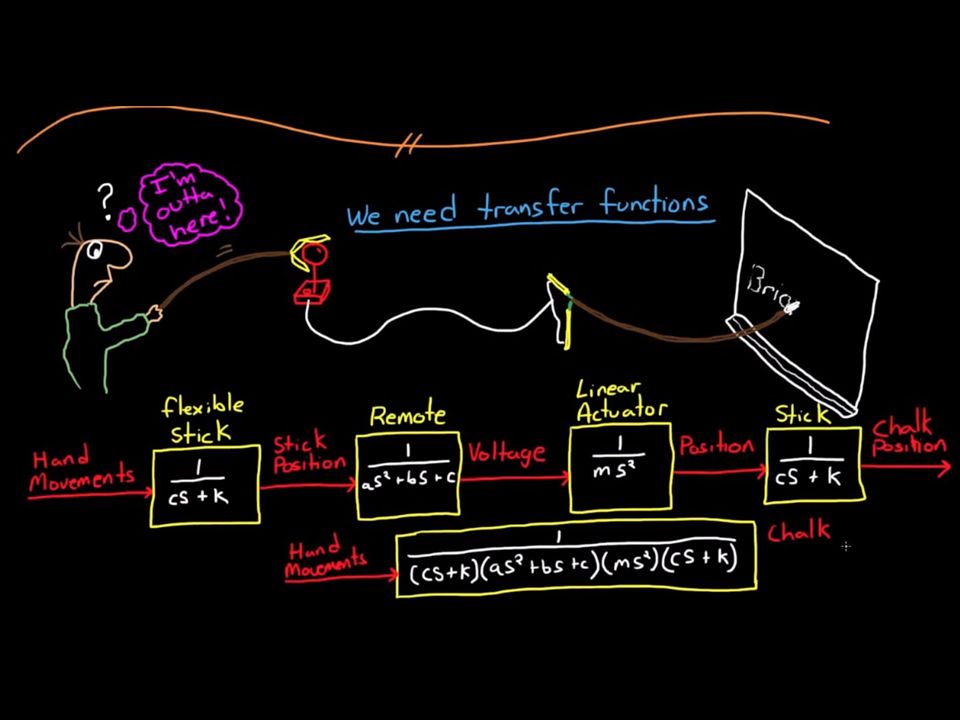 ?
I'm
outta
here!
We need transfer functions
Bria
flexible
stick
Remote
Linear
Actuator
Stick
Hand
Movements
1
cs + k
Stick
Position
1
as² + bs + c
Voltage
1
ms²
Position
1
cs + k
Chalk
Position
Hand
Movements
1
(cs+k)(as²+bs+c)(ms²)(cs+k)
Chalk